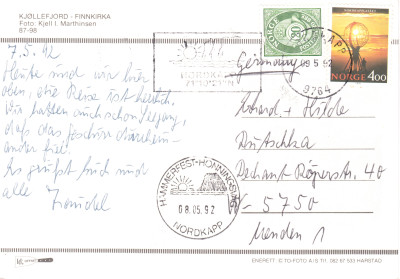 KJØLLEFJORD - FINNKIRKA
Foto: Kjell I. Marthinsen
67-98
7.5.92
Heute sind wir hier
oben, die Reise ist herrlich.
Wir hatten auch schon Seegang,
daß das Geschirr durchein-
ander fiel.
Es grüßt Euch und
alle
NORGE
NORDKAPP
NORGE 4.00
NORDKAPP
9764
Germany
Erhard + Hilde
Dechant-Röper-Str. 40
W-5750
Menden 1
HAMMERFEST-HONNINGSVÅG
08.05.92
NORDKAPP
ENERETT: C. TO-FOTO A/S Tlf. 082 67 533 HARSTAD